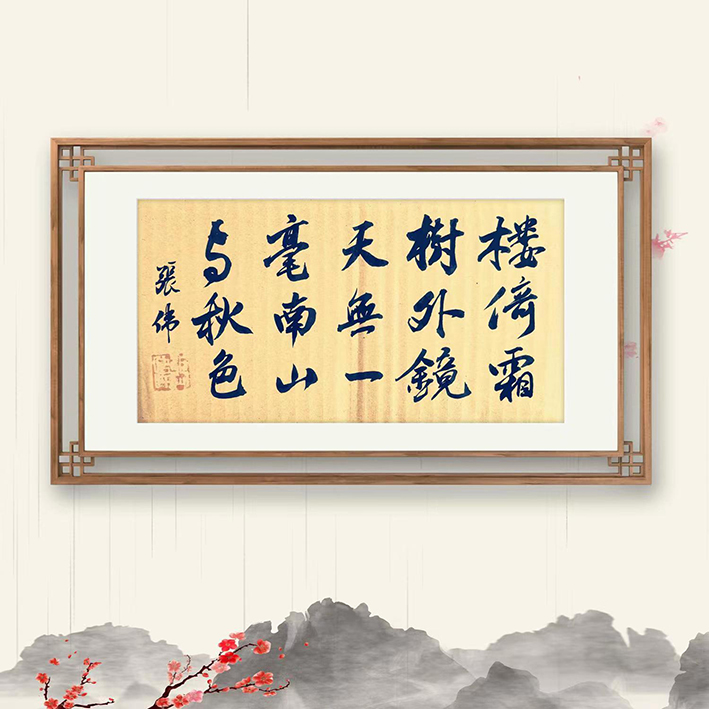 楼倚霜
樹外鏡
天無一
毫南山
与秋色
張伟